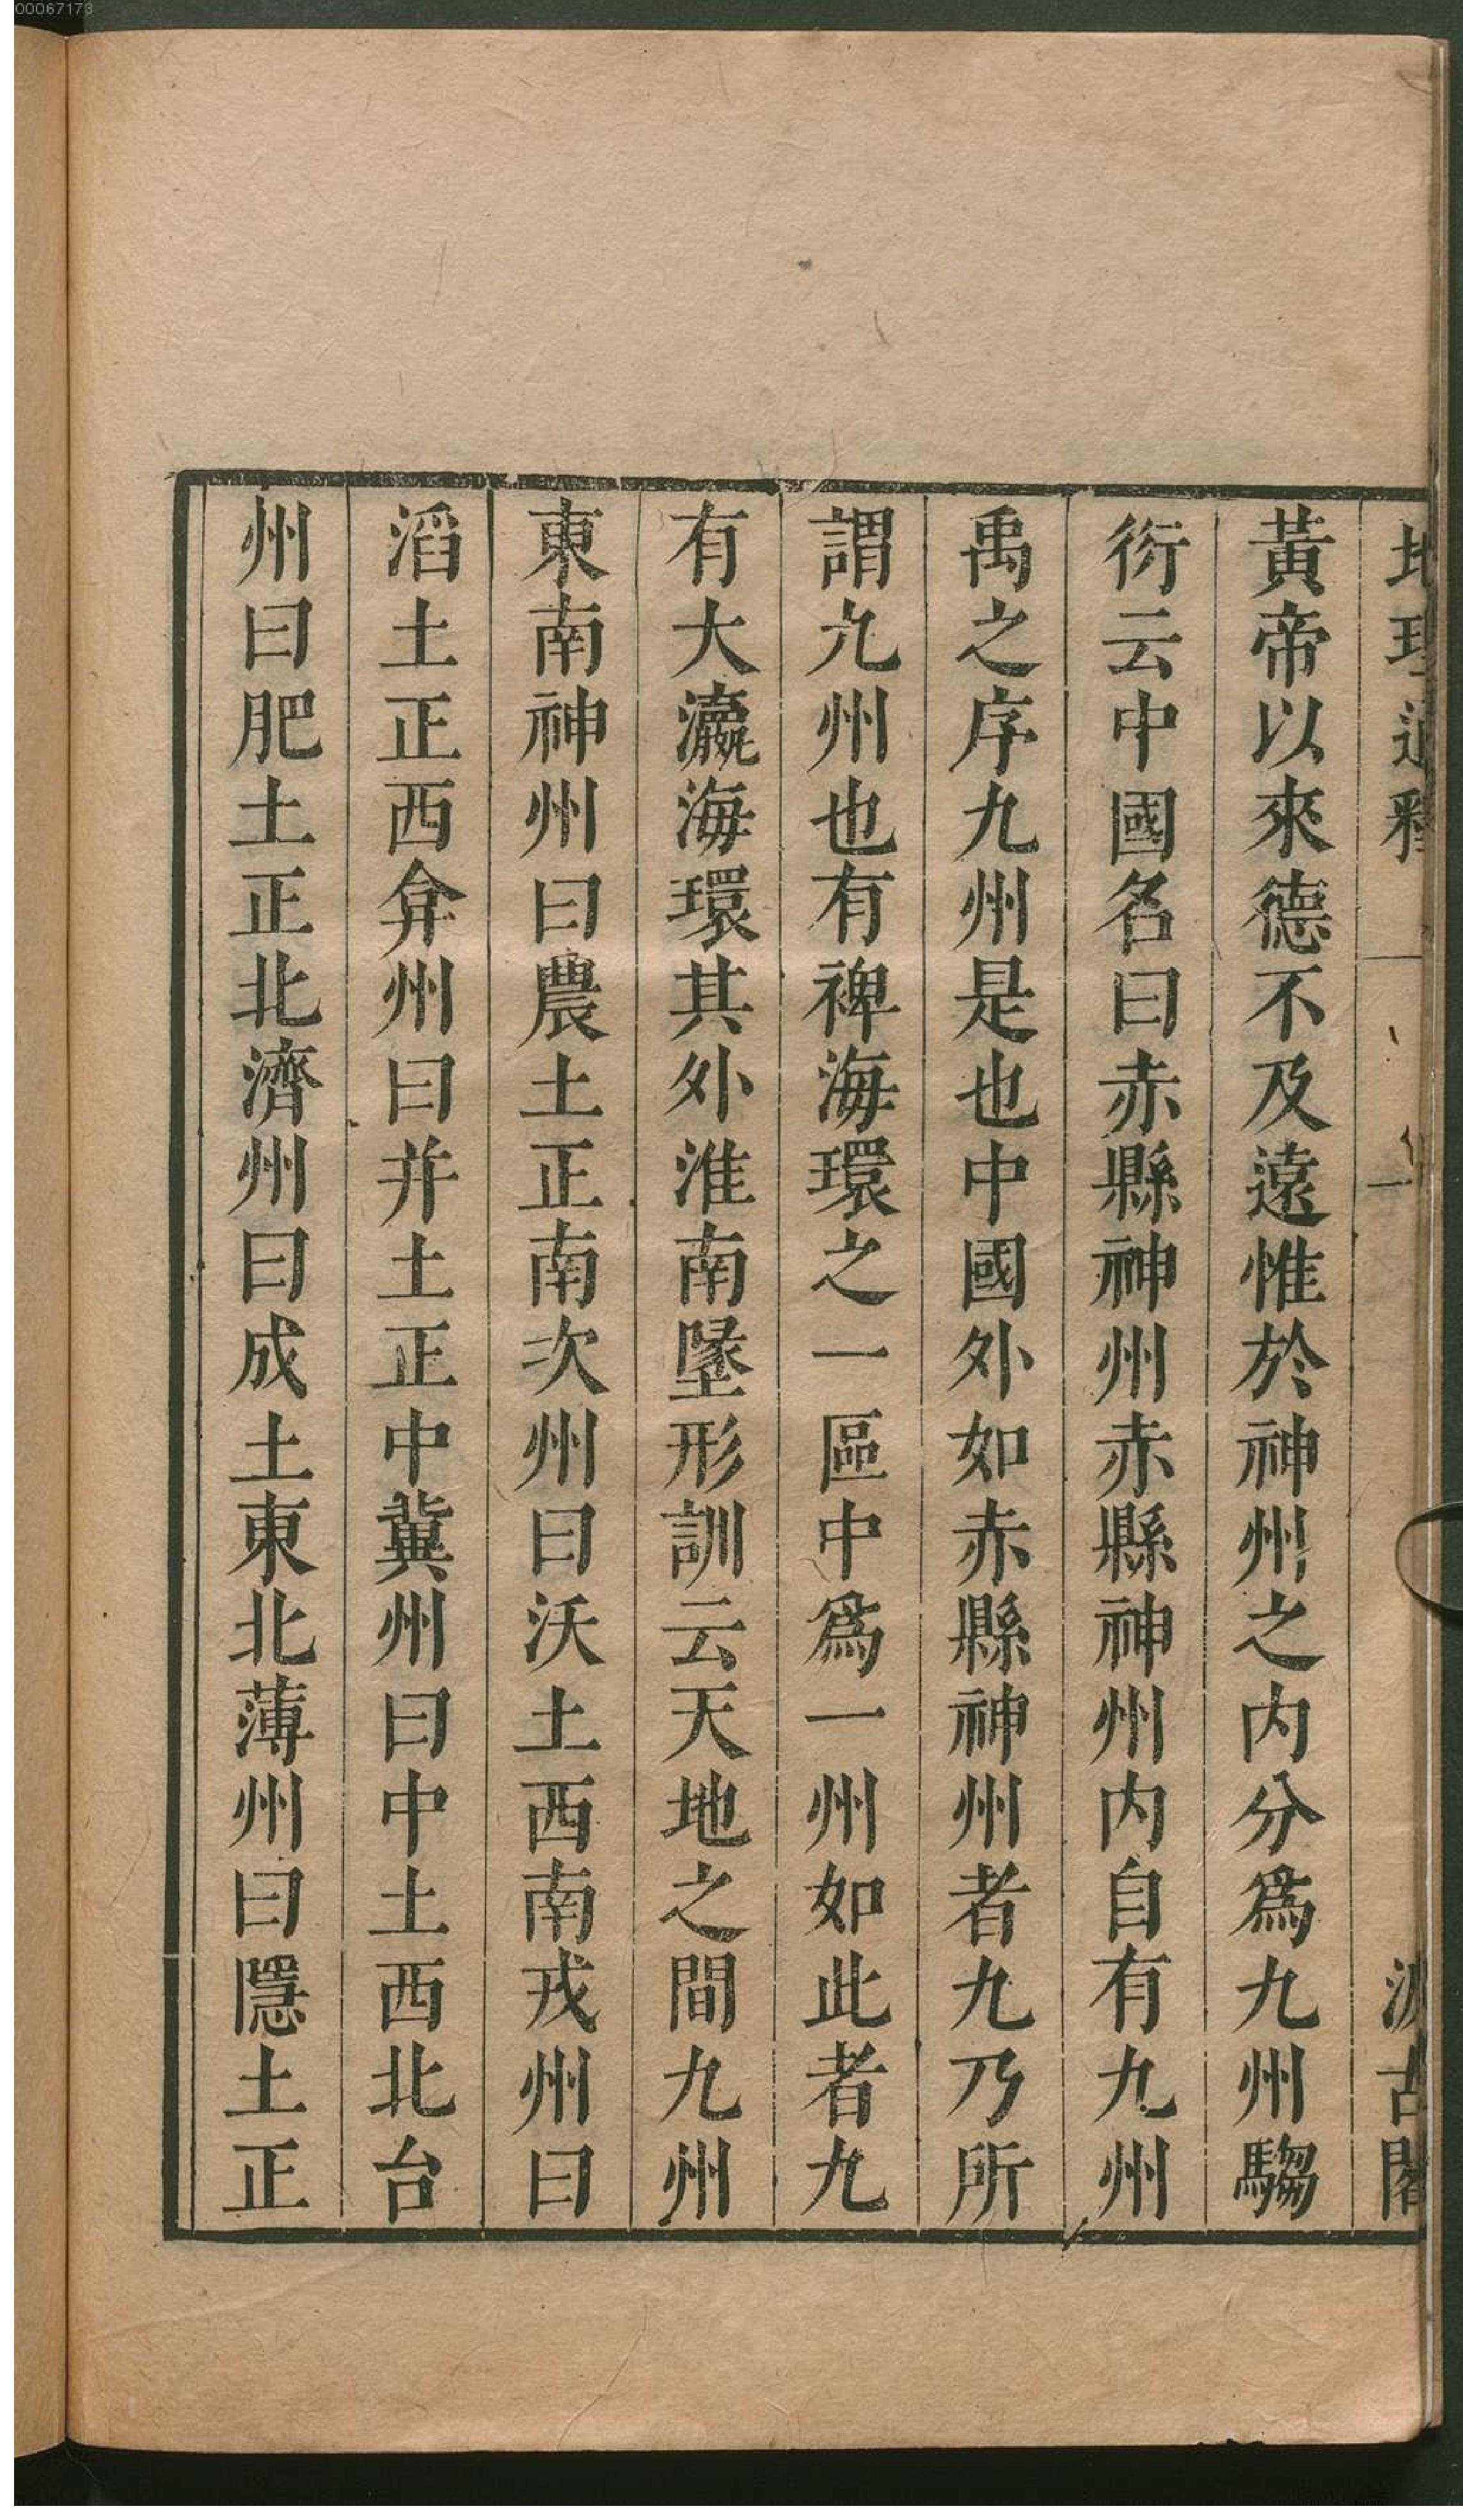 00067173
地理通釋
一
汲古閣
黃帝以來德不及遠惟於神州之内分爲九州騶
衍云中國名曰赤縣神州赤縣神州内自有九州
禹之序九州是也中國外如赤縣神州者九乃所
謂九州也有裨海環之一區中爲一州如此者九
有大瀛海環其外淮南墬形訓云天地之間九州
東南神州曰農土正南次州曰沃土西南戎州曰
滔土正西弇州曰并土正中冀州曰中土西北台
州曰肥土正北濟州曰成土東北薄州曰隱土正